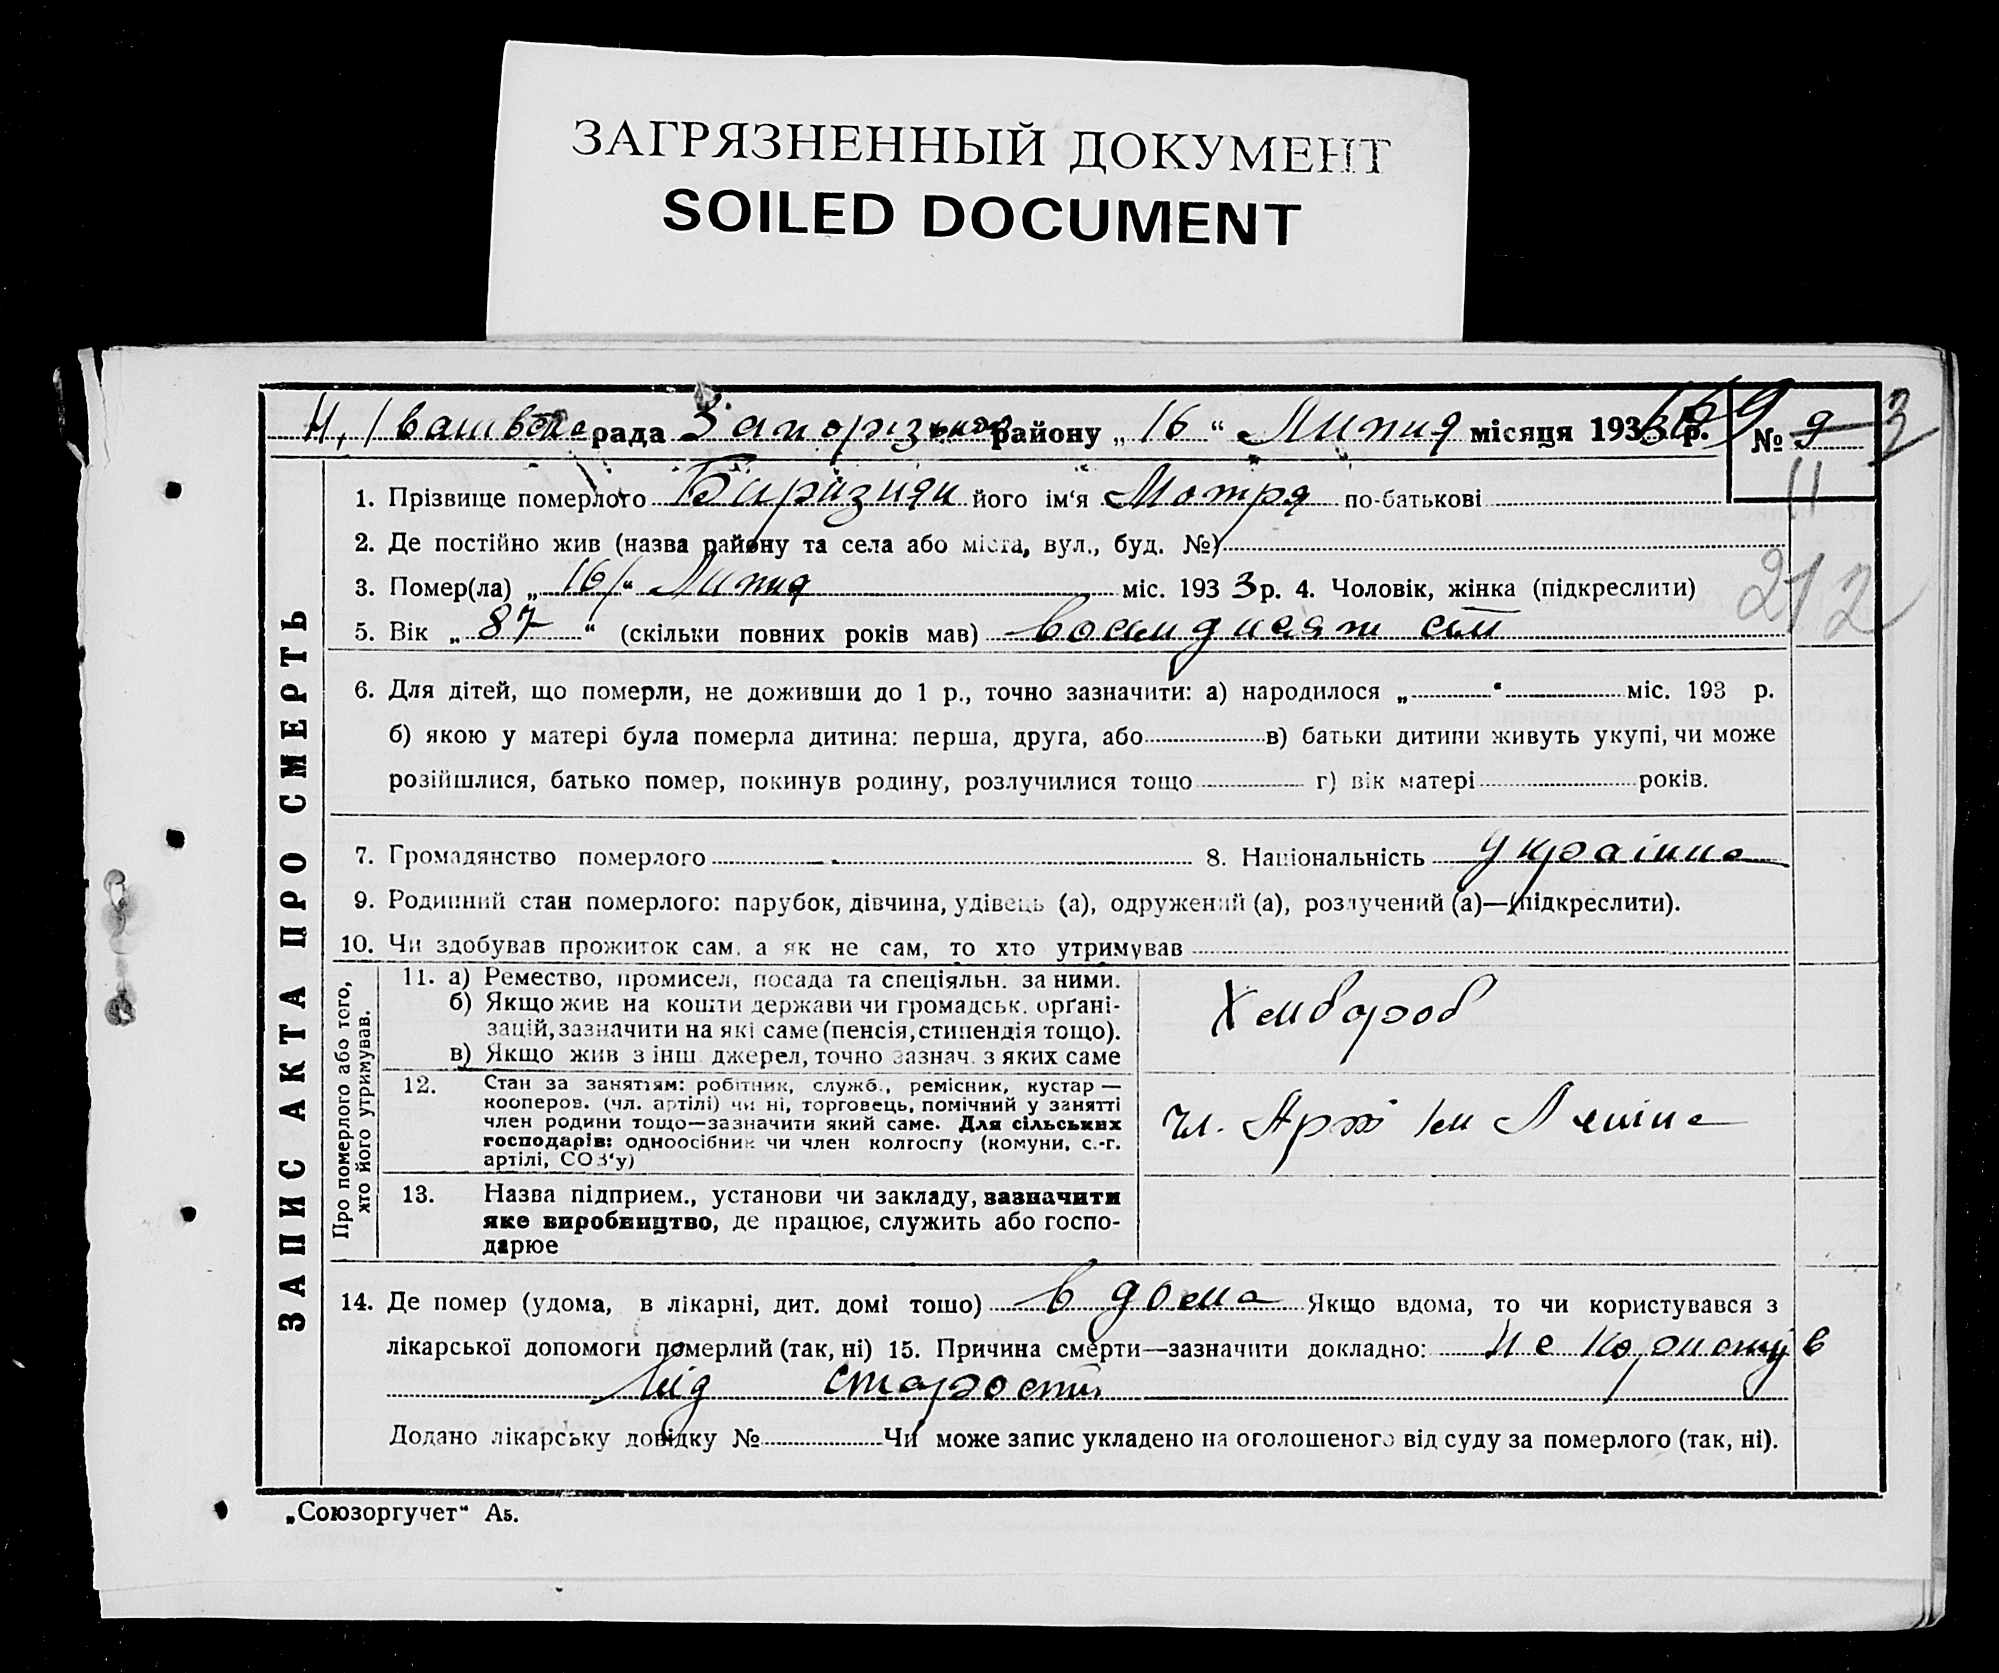 ЗАГРЯЗНЕННЫЙ ДОКУМЕНТ
SOILED DOCUMENT
рада район у „ 16 “ Липня місяця 1933 р. № 9 3
669
11
1. Прізвище померлого його ім‘я Мотря по-батькові
2. Де постійно жив (назва району та села або міста, вул., буд. №)
3. Помер(ла) „ 16 “ Липня міс. 193 3 р. 4. Чоловік, жінка (підкреслити)
212
5. Вік „ 87 “ (скільки повних років мав) восимдисят сім
6. Для дітей, що померли, не доживши до 1 р., точно зазначити: а) народилося „ “ міс. 193 р.
б) якою у матері була померла дитина: перша, друга, або в) батьки дитини живуть укупі, чи може
розійшлися, батько помер, покинув родину, розлучилися тощо г) вік матері років.
7. Громадянство померлого 8. Національність Україниа
9. Родинний стан померлого: парубок, дівчина, удівець (а), одружений (а), розлучений (а)—(підкреслити).
10. Чи здобував прожиток сам, а як не сам, то хто утримував
ЗАПИС АКТА ПРО СМЕРТЬ
Про померлого або того,
хто його утримував.
11. а) Ремество, промисел, посада та спеціяльн. за ними.
б) Якщо жив на кошти держави чи громадськ. орґані-
зацій, зазначити на які саме (пенсія, стипендія тощо).
в) Якщо жив з інш. джерел, точно зазнач. з яких саме
Хлибороб
12. Стан за заняттям: робітник, служб., ремісник, кустар —
кооперов. (чл. артілі) чи ні, торговець, помічний у занятті
член родини тощо—зазначити який саме. Для сільських
господарів: одноосібник чи член колгоспу (комуни, с.-г.
артілі, СОЗ‘у)
чл. Арт Ім Леніна
13. Назва підприєм., установи чи закладу, зазначити
яке виробництво, де працює, служить або госпо-
дарює
14. Де помер (удома, в лікарні, дит. домі тощо) в дома Якщо вдома, то чи користувався з
лікарської допомоги померлий (так, ні) 15. Причина смерти—зазначити докладно: не користув
від старости
Додано лікарську довідку № Чи може запис укладено на оголошеного від суду за померлого (так, ні).
„Союзоргучет“ А5.